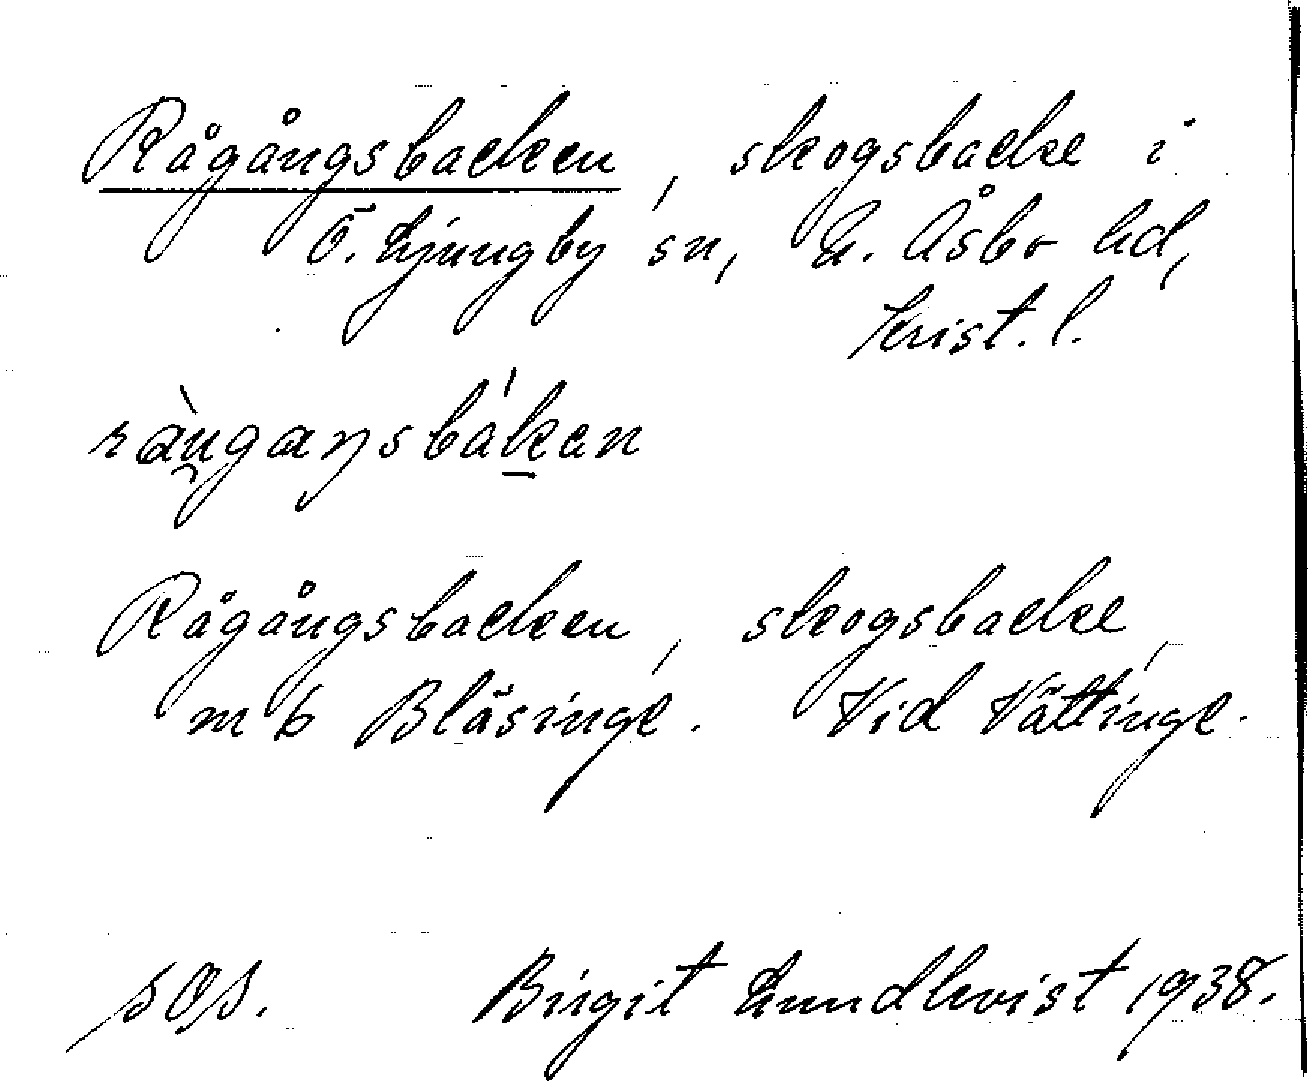 Rågångsbacken, skogsbacke i
Ö. Ljungby sn, N. Åsbo hd,
Krist. l.
Rågångsbacken, skogsbacke,
mb Bläsinge. Vid Vättinge.
Birgit Lundkvist 1938.